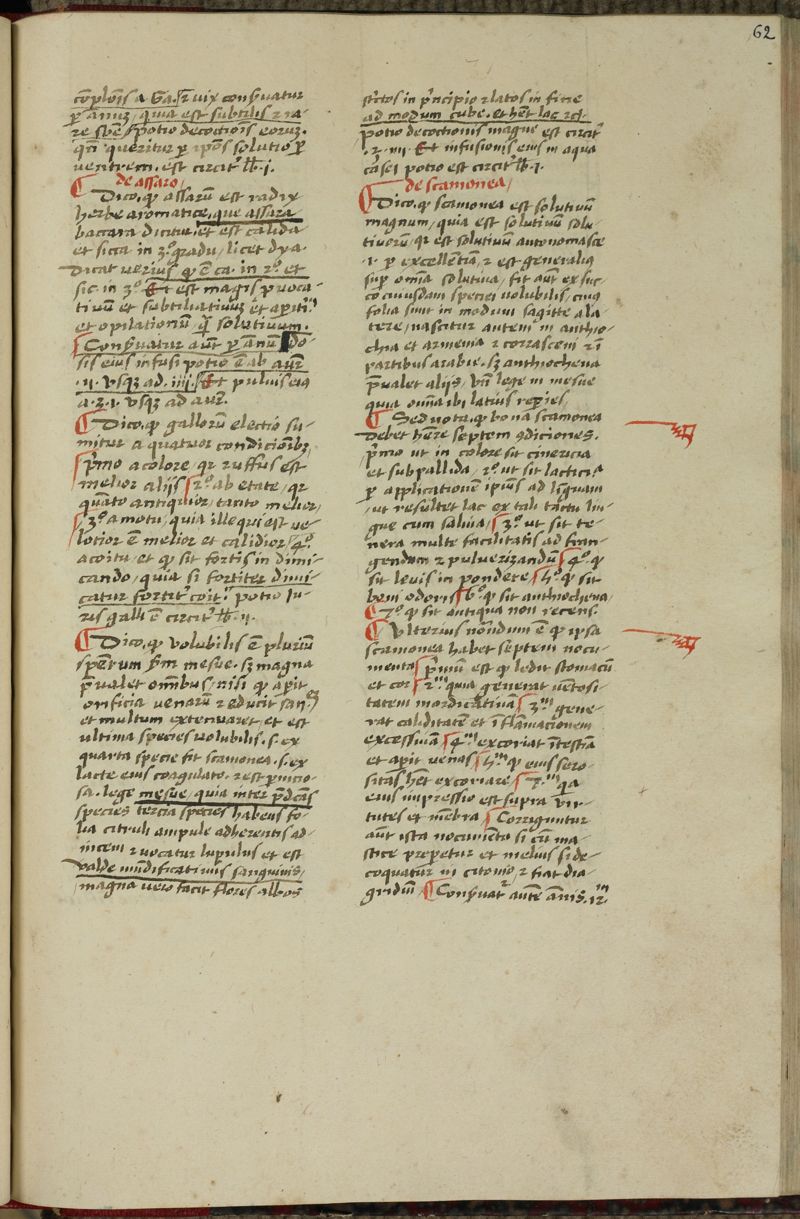 62
per annum, quia est subtilis et ra-
potio decoctionis eorum.
qn̄ queritur per ip̄ius solutio p̄
ventrem. est circitͬ lb. j.
de assaro
Dico. qͩ assarū est radix
herbe aromatice, que assara
baccara dicitur. et est calida
et sicca in 3º gradu, licet dya.
dicat verius qͩ ē ca. in 2º et
sic. in 3º. Et est magis provoca-
tivū et subtiliativū et aperiti.
et opilationū, qͣ solutivum.
Conservatur autͫ per annū Do-
sis eius infusi potio ē ab aurͤ
.ij. vsqȝ ad .iiij. Et pulvis eiꝰ
a .ʒ.j. vsqȝ ad aurͤ.
Dico. qͩ gallorū electio su-
mitur a quatuor condicionibȝ
p̄mo a colore qr ruffus est
melior alijs 2º ab etate, qr
quāto antiquior, tanto melior,
3º a motu, quia ille qui est ve-
lotior ē melior et calidior, 4º
a coitu, et qͩ sit fortis in dimi-
cando, quia si fortiter dimi-
catur fortitͬ coit. potio iu-
ris galli ē circitͬ lb. ij.
Dico. qͩ volubilis ē plurium
specierum s̄m mesue. sȝ magna
p̄valet omnibus, nisi qͩ aperit
orificia venarū et educit san.
et multum extenuaret, et est
ultima species volubilis. s. ex
quarta specie fit scamonea. s. ex
lacte eius coagulato. et est p̄nicio-
sa. lege mesue, quia inter p̄dcās
species tercia species habens fo-
lia citruli ampule adherentis ad-
invicem et vocatur lupulus et est
valde mūdificativus sanguinis,
magna vero facit flores albos
strictos in p̄ncipio et latos in fine
ad modum tube. et hēt lac etc.
potio decoctionis magne est circitͬ
.ʒ. iiij. Et infusionis eius in aqua
casei potio est circitͬ lb. j.
de scamonea
Dico. qͩ scamonea est solutivū
magnum, quia est solutivū solu-
tivorū, qr est solutivū autonomasce
.i. per excellentiā, et est generaliꝰ
sup̄ omnia solutiva, fit autͫ ex suc-
co cuiusdam speciei volubilis, cuiꝰ
folia sunt in modum sagitte ala-
te re, nascitur autem in anthio-
chia et armenia et corrasceni et ī
partibus arabie. sȝ anthiochena
p̄valet alijs. vn̄ lege in mesue
quia omnia ibi latius reperies
Sed nota. qͩ bona scamonea
debet hēre septem 9diciones.
p̄mo ut in colore sit cinericia
et subpallida, 2º ut sit lacticia
per applicationē ipius ad linguam
, ut resultet lac ex tali tactu lin-
gue cum saliva, 3º ut sit te-
nera multe facilitatis ad fran-
gendum et pulverizandū 4º qͩ
sit levis in pondere, 5º qͩ sit
boni odoris 6º qͩ sit anthiochena,
7º qͩ sit antiqua non recens.
Ulterius notandum ē qͩ ipsa
scamonea habet septem nocu-
menta p̄mū est qͩ ledit stomacū
et cor 2ᵐ quia generat vētosi-
tatem mordicativam 3ᵐ gene-
rat caliditatē et inflāmacionem
excessivā 4ᵐ excoriat ītestīa
et aperit venas 5ᵐ qͩ eius sero-
sitas hēt excoriare 7ᵐ qͣ
eius impressio est supra vir-
tutes et mēbra Corriguntur
autͫ ista nocumēta si cū ma-
stice p̄peretur et melius si de-
coquatur in citonio, et fiat dia-
gridiū, Conservatur autē annis. 12